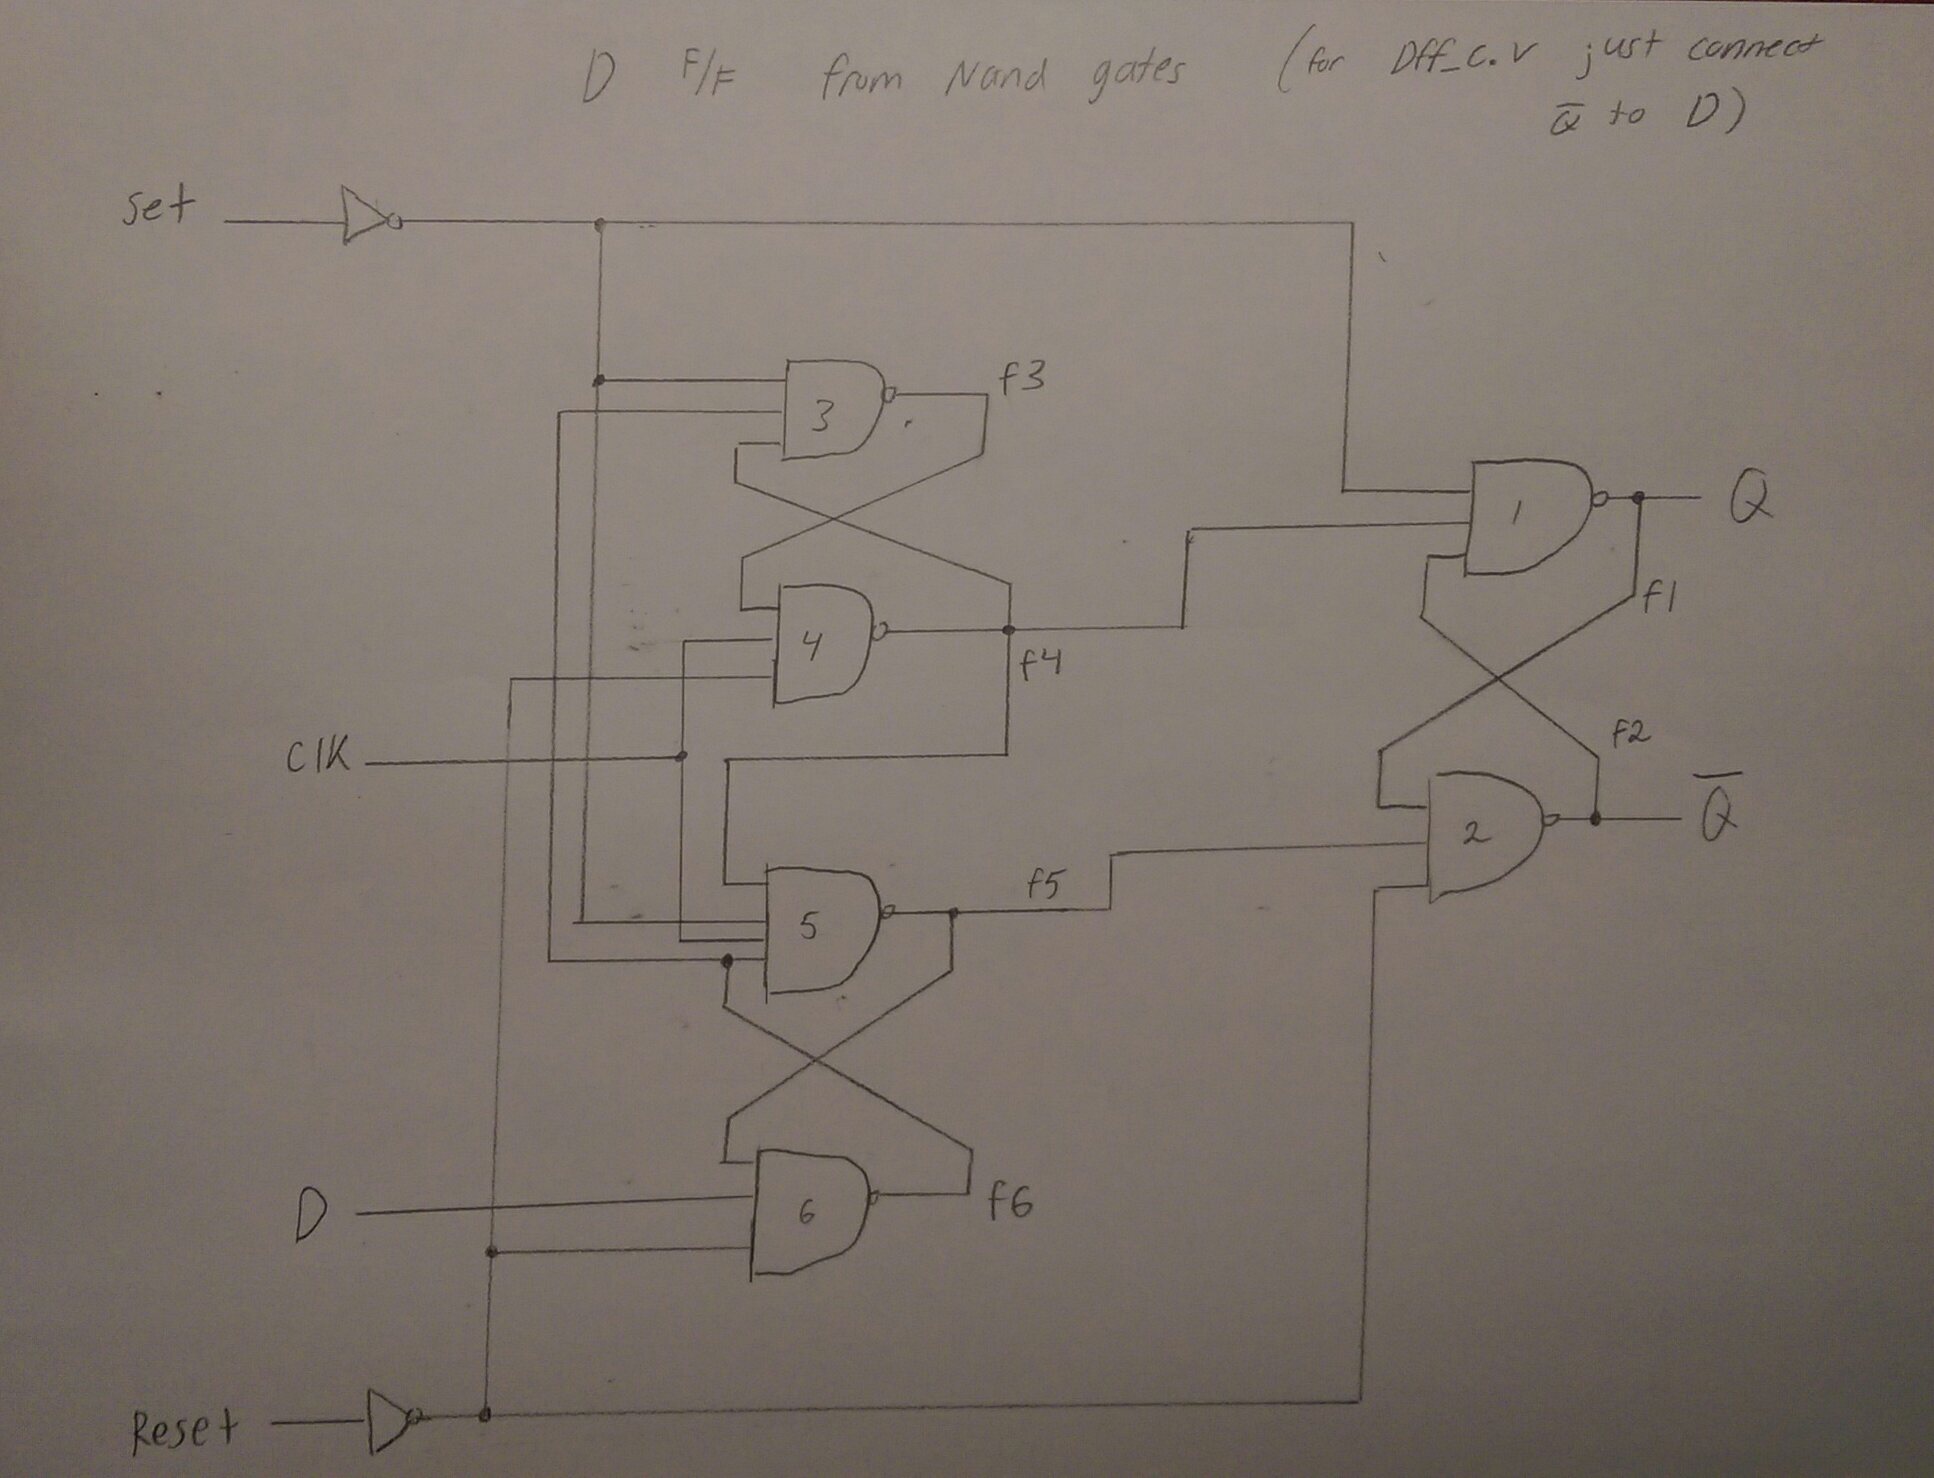 D F/F from Nand gates (for Dff_c.v just connect
Q̅ to D)
Set
f3
3
Q
1
f1
4
f4
f2
ClK
Q̅
2
f5
5
D
6
f6
Reset